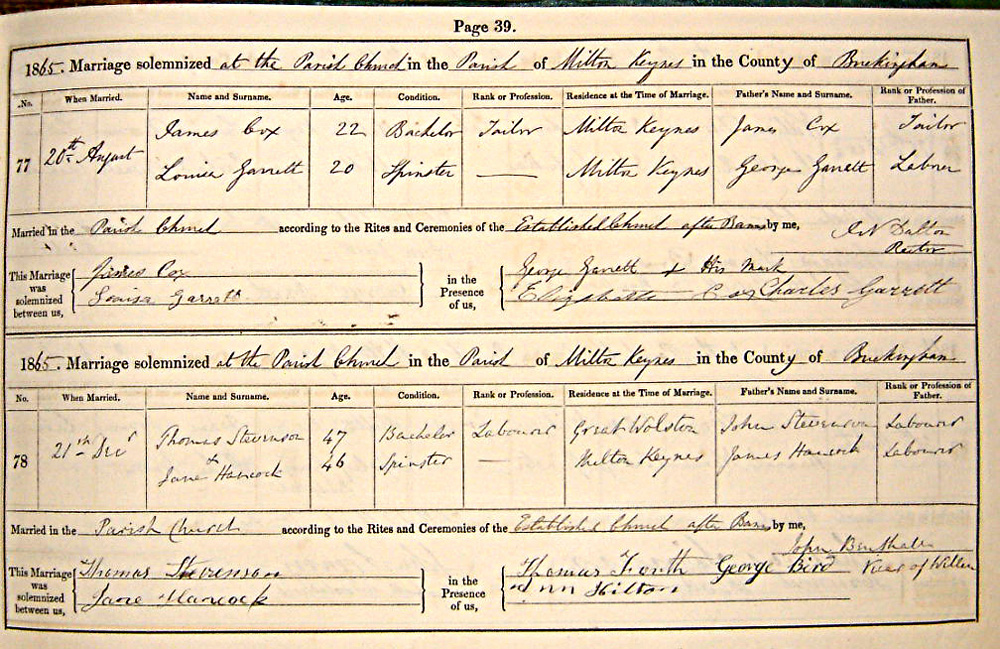 Page 39.
1865. Marriage solemnized at the Parish Church in the Parish of Milton Keynes in the County of Buckingham
No. When Married. Name and Surname. Age. Condition. Rank or Profession. Residence at the Time of Marriage. Father's Name and Surname. Rank or Profession of Father.
77 20th August James Cox 22 Bachelor Tailor Milton Keynes James Cox Tailor
Louisa Garrett 20 Spinster — Milton Keynes George Garrett Labourer
Married in the Parish Church according to the Rites and Ceremonies of the Established Church after Banns by me, Dalton
Rector
This Marriage was solemnized between us, James Cox
Louisa Garratt
in the Presence of us, George Garrett X His Mark
Elizabeth Cox Charles Garrett
1865. Marriage solemnized at the Parish Church in the Parish of Milton Keynes in the County of Buckingham
No. When Married. Name and Surname. Age. Condition. Rank or Profession. Residence at the Time of Marriage. Father's Name and Surname. Rank or Profession of Father.
78 21st Decr Thomas Stevenson 47 Bachelor Labourer Great Wolston John Stevenson Labourer
Jane Hancock 46 Spinster — Milton Keynes James Hancock Labourer
Married in the Parish Church according to the Rites and Ceremonies of the Established Church after Banns by me,
John
Vicar of Willen
This Marriage was solemnized between us, Thomas Stevenson
Jane Hancock
in the Presence of us, Thomas George Bird
Ann Hilton